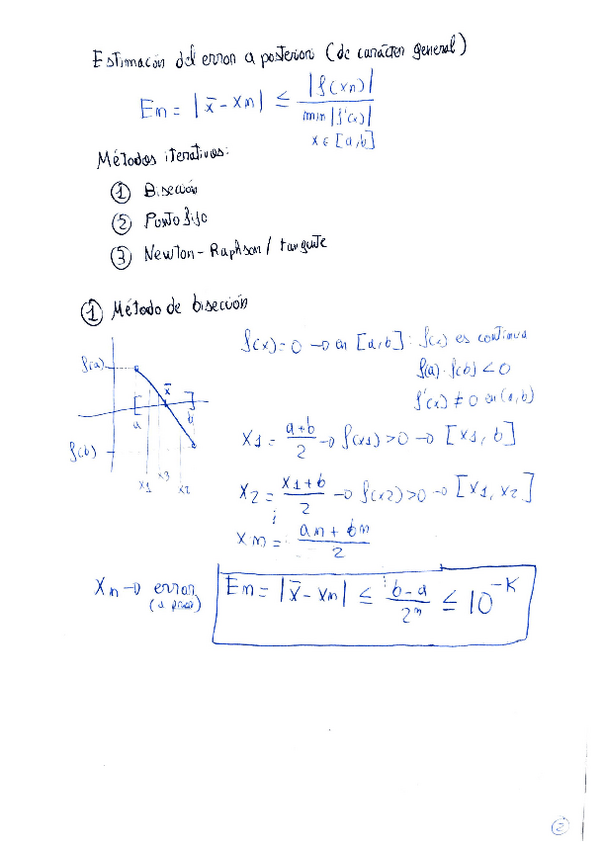 Estimación del error a posteriori (de carácter general)
En = |x̄ - xn| ≤ |f(xn)| / min |f'(x)|
x ∈ [a,b]
Métodos iterativos:
① Bisección
② Punto fijo
③ Newton-Raphson / tangente
① Método de bisección
f(x) = 0 → en [a,b] : f(x) es continua
f(a)·f(b) < 0
f'(x) ≠ 0 en (a,b)
f(a)
x̄
a
b
f(b)
x1 x3 x2
x1 = a+b / 2 → f(x1) > 0 → [x1, b]
x2 = x1+b / 2 → f(x2) > 0 → [x1, x2]
⋮
xn = an + bn / 2
xn → error
(a priori)
En = |x̄ - xn| ≤ b-a / 2ⁿ ≤ 10^-k
2